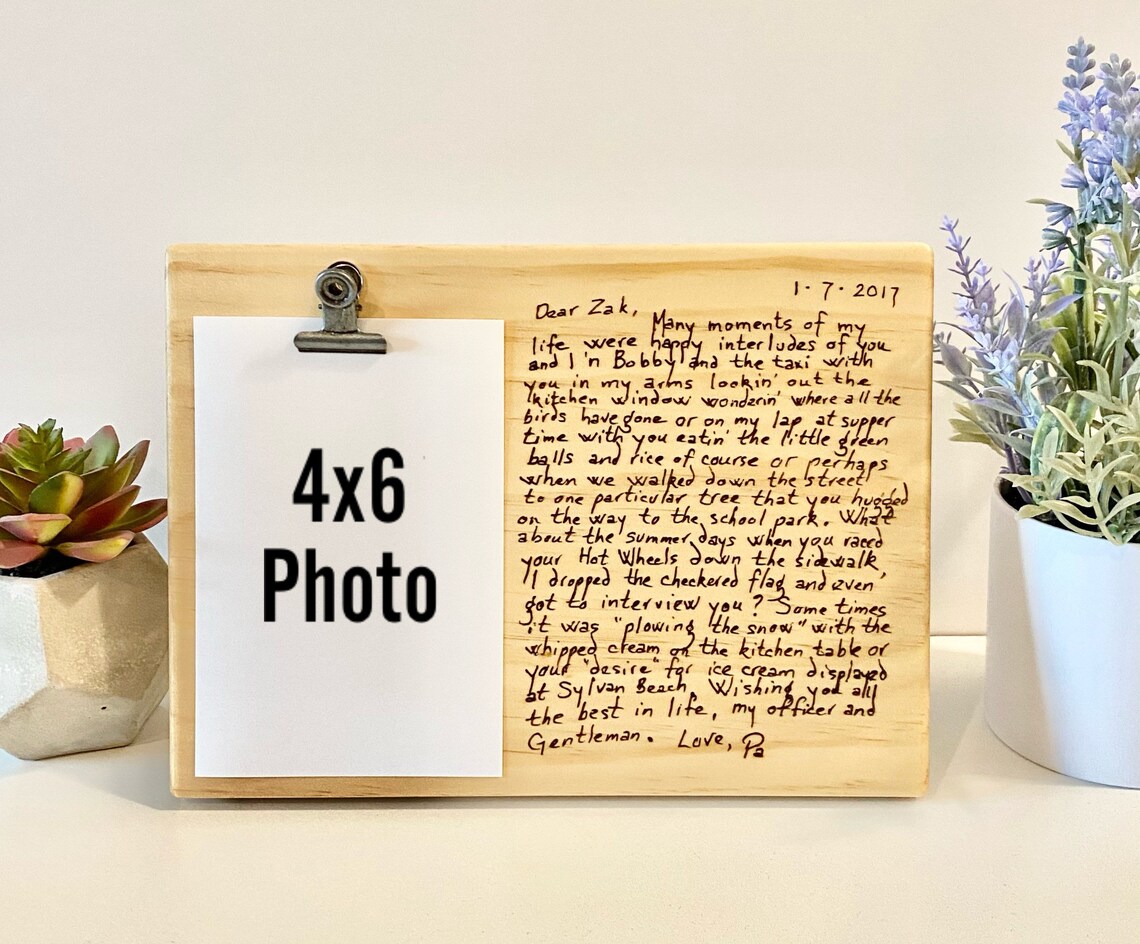 4x6
Photo
1·7·2017
Dear Zak,
Many moments of my
life were happy interludes of you
and I 'n Bobby and the taxi with
you in my arms lookin' out the
kitchen window wonderin' where all the
birds have gone or on my lap at supper
time with you eatin' the little green
balls and rice of course or perhaps
when we walked down the street
to one particular tree that you hugged
on the way to the school park. What
about the summer days when you raced
your Hot Wheels down the sidewalk,
I dropped the checkered flag and even
got to interview you? Some times
it was "plowing the snow" with the
whipped cream on the kitchen table or
your "desire" for ice cream displayed
at Sylvan Beach. Wishing you all
the best in life, my officer and
Gentleman. Love, Pa